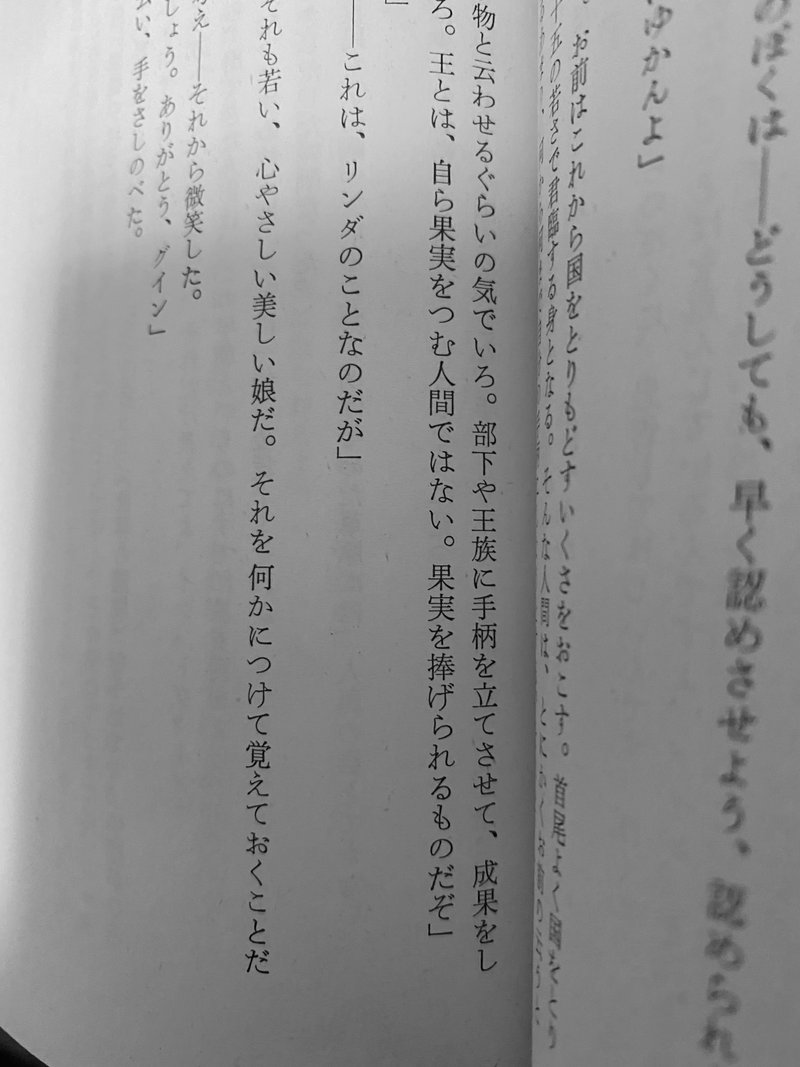 のぼくは――どうしても、早く認めさせよう。認められ
ゆかんよ」
。お前はこれから国をとりもどすいくさをおこす。首尾よく国をとり
十五の若さで君臨する身となる。そんな人間は、とにかくお前の
物と云わせるぐらいの気でいろ。部下や王族に手柄を立てさせて、成果をし
ろ。王とは、自ら果実をつむ人間ではない。果実を捧げられるものだぞ」
」
――これは、リンダのことなのだが」
それも若い、心やさしい美しい娘だ。それを何かにつけて覚えておくことだ
え――それから微笑した。
しょう。ありがとう、グイン」
い、手をさしのべた。